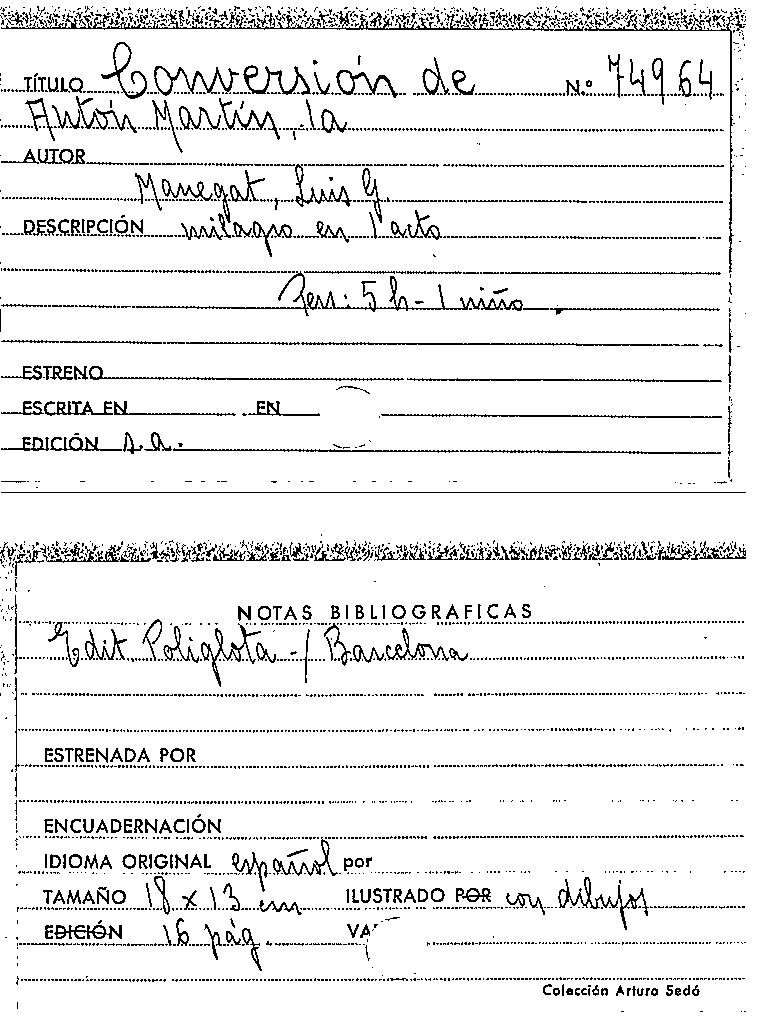 TÍTULO Conversión de N.º 74964
Antón Martín, la
AUTOR
Manegat, Luis G.
DESCRIPCIÓN milagro en 1 acto
Pers: 5 h - 1 niño.
ESTRENO
ESCRITA EN EN
EDICIÓN s.a.
NOTAS BIBLIOGRAFICAS
Edit. Políglota - / Barcelona
ESTRENADA POR
ENCUADERNACIÓN
IDIOMA ORIGINAL español por
TAMAÑO 18 x 13 cm ILUSTRADO POR con dibujos
EDICIÓN 16 pág. VA
Colección Arturo Sedó